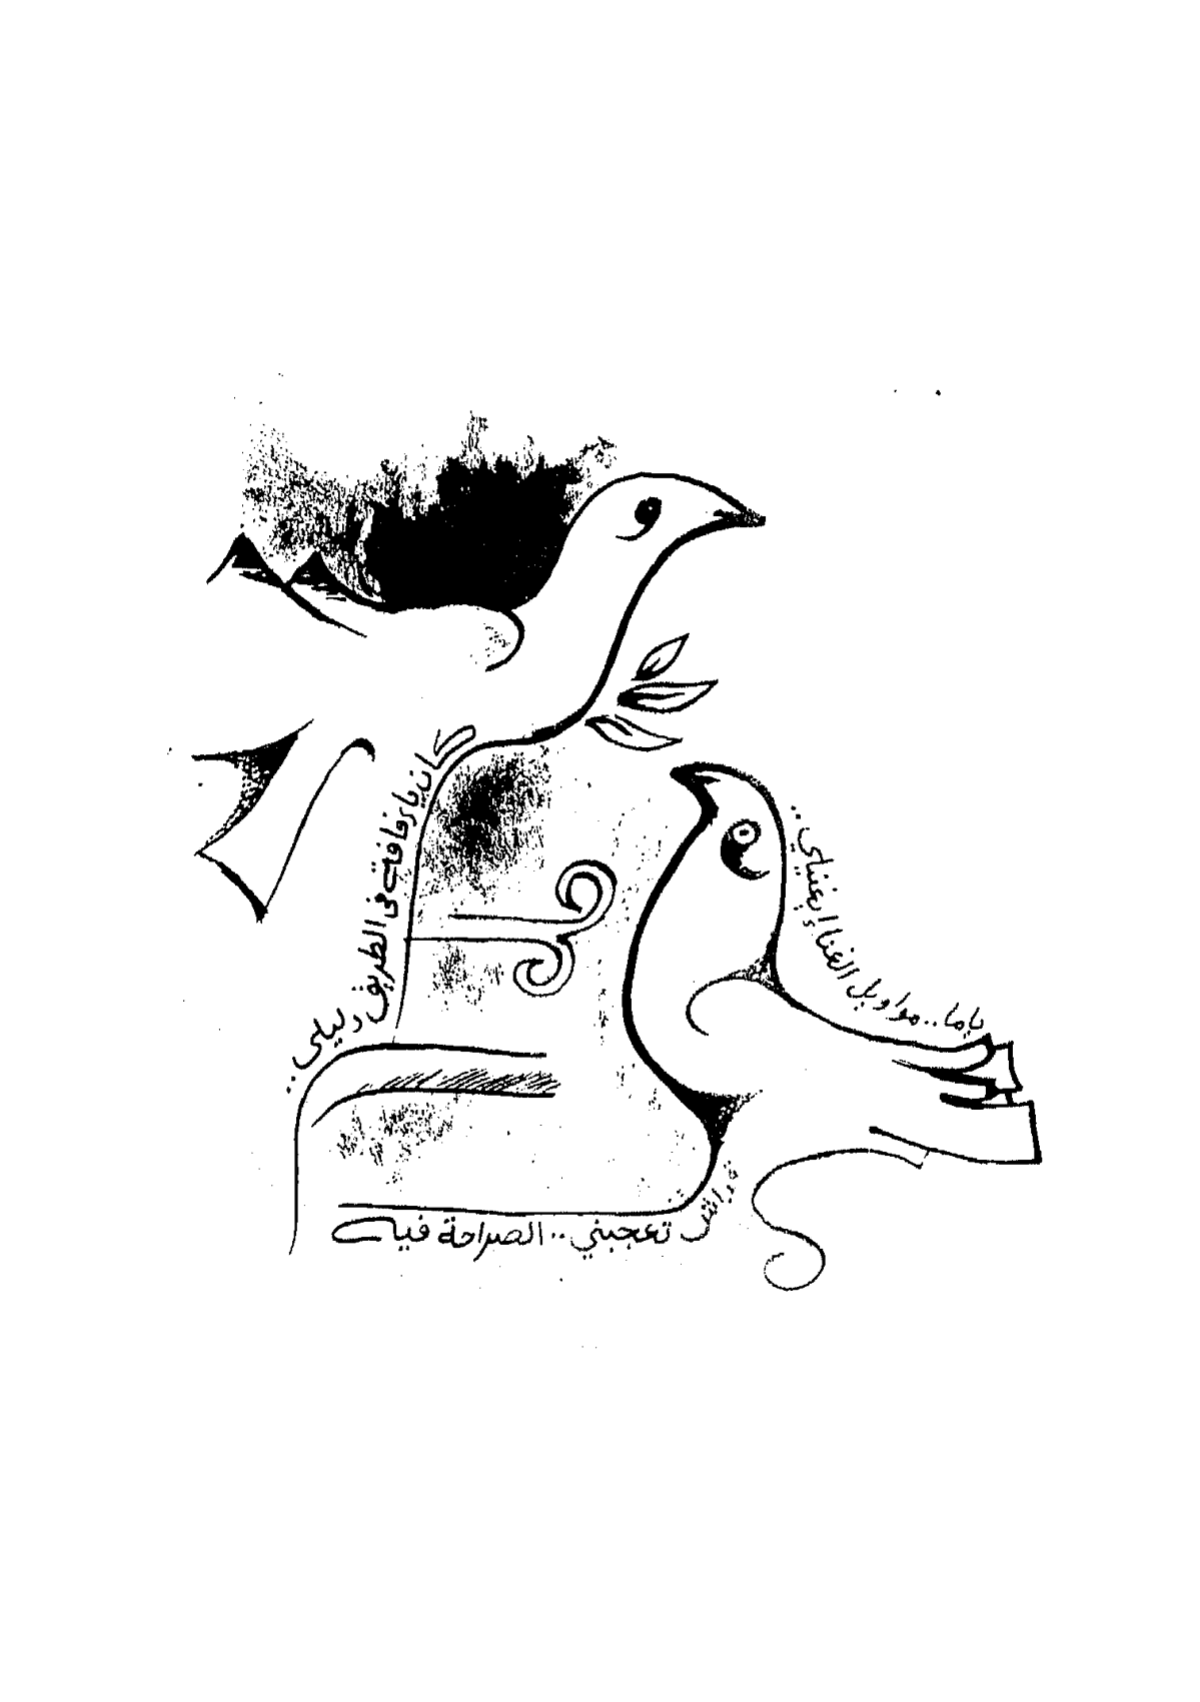 كان يا رفاقة في الطريق دليلي..
ياما.. مواويل الغناء إيغنيلي..
تعجبني.. الصراحة فيك